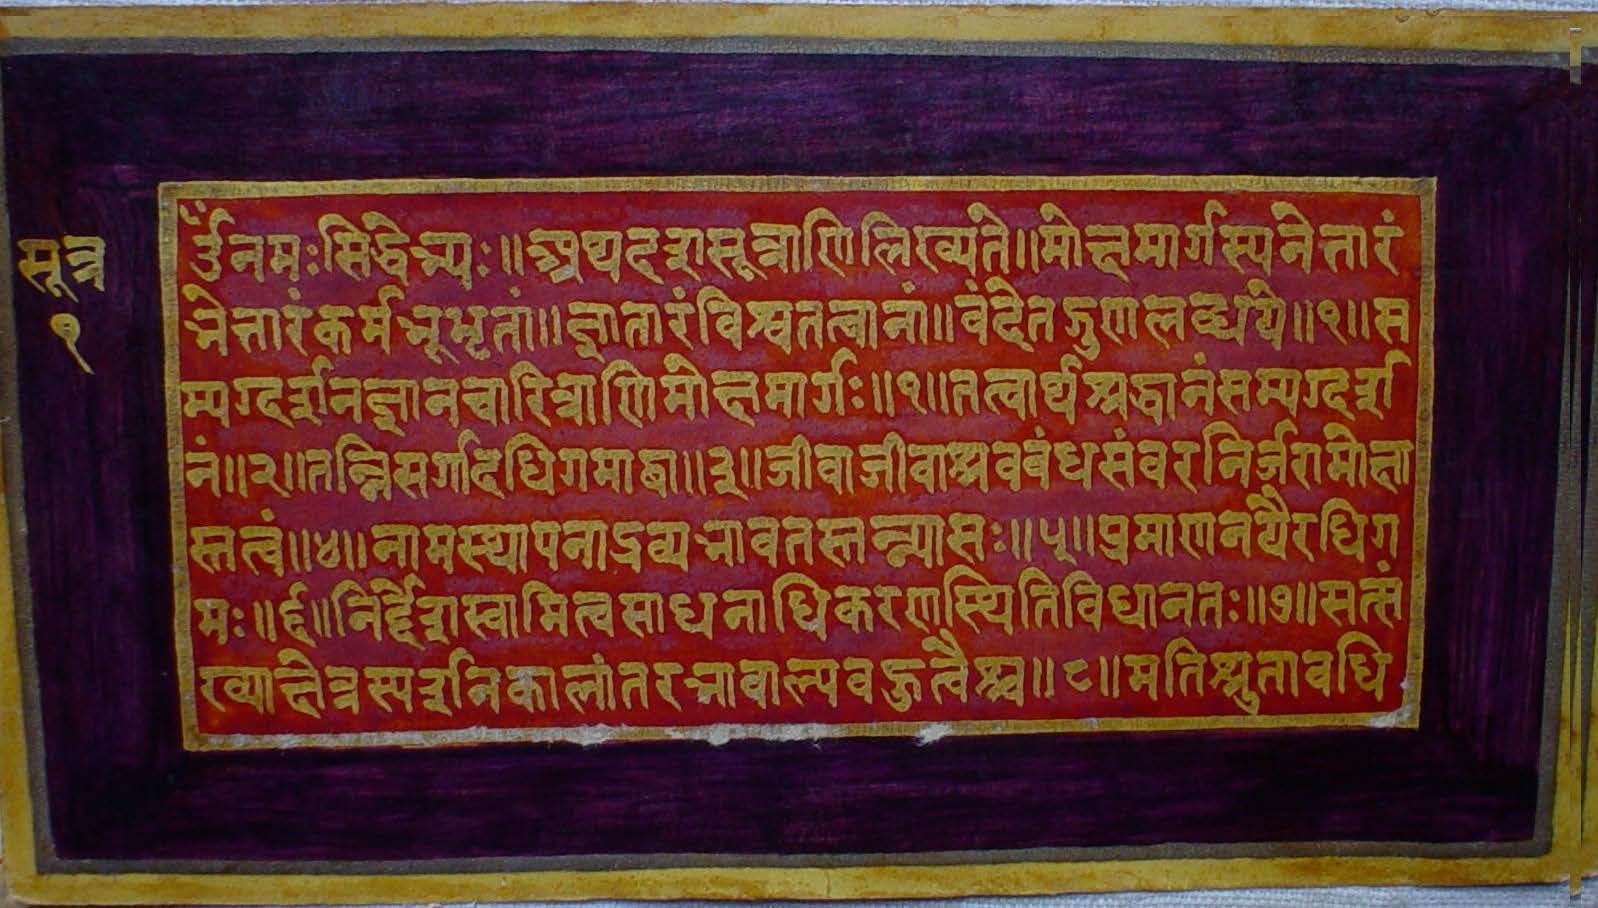 सूत्र
१
ॐनमःसिद्धेभ्यः॥अथदशसूत्राणिलिख्यते॥मोक्षमार्गस्यनेत्तारं
भेत्तारंकर्मभूभृतां॥ज्ञातारंविश्वतत्वानां॥वंदेतद्गुणलब्धये॥१॥स
म्यग्दर्शनज्ञानचारित्राणिमोक्षमार्गः॥१॥तत्वार्थश्रद्धानंसम्यग्दर्श
नं॥२॥तन्निसर्गादधिगमाद्वा॥३॥जीवाजीवाश्रवबंधसंवरनिर्जरामोक्षा
स्तत्वं॥४॥नामस्थापनाद्रव्यभावतस्तन्न्यासः॥५॥प्रमाणनयैरधिग
मः॥६॥निर्द्देशस्वामित्वसाधनाधिकरणस्थितिविधानतः॥७॥सत्सं
ख्याक्षेत्रस्पर्शनकालांतरभावाल्पबहुत्वैश्च॥८॥मतिश्रुतावधि